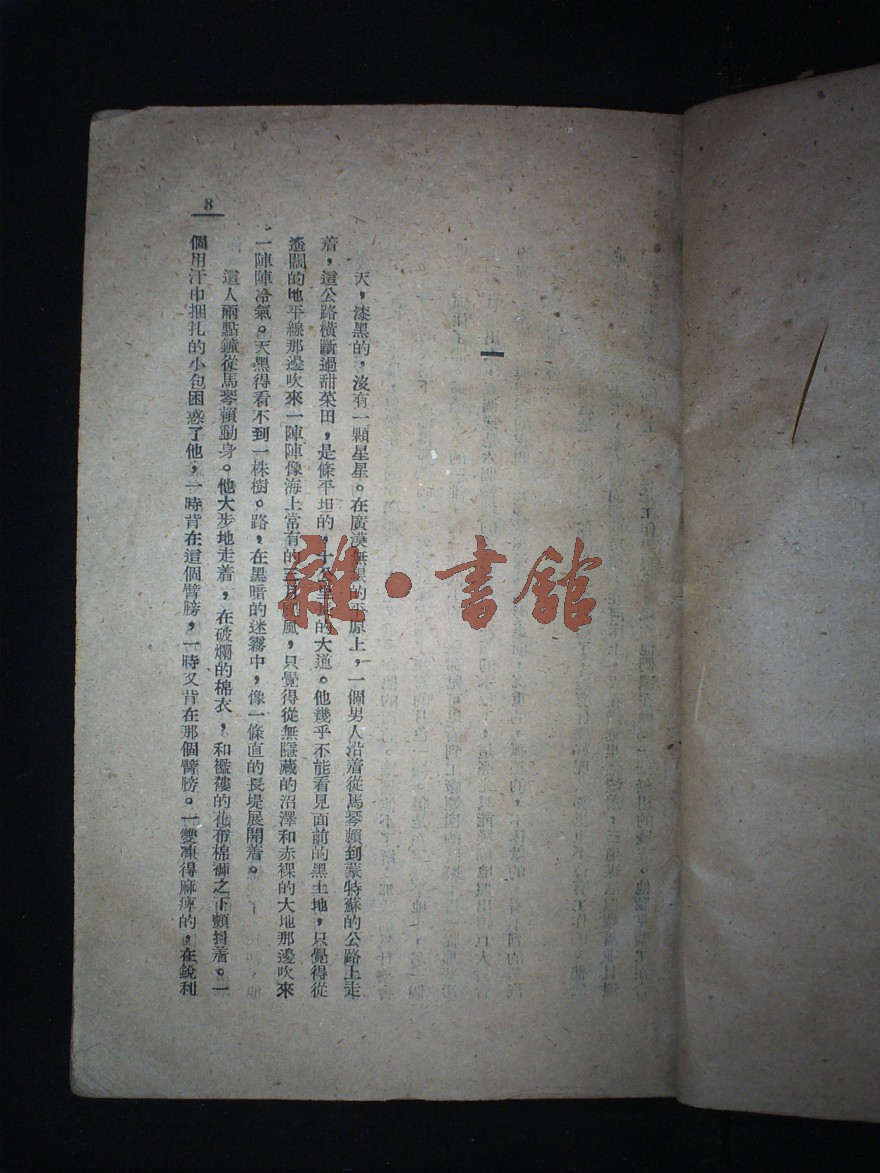 一
天，漆黑的，沒有一顆星星。在廣漠無限的平原上，一個男人沿着從馬琴頼到蒙特蘇的公路上走
着，這公路橫斷過甜菜田，是條平坦的，十公里長的大道。他幾乎不能看見面前的黑土地，只覺得從
遙闊的地平線那邊吹來一陣陣像海上常有的三月風，只覺得從無隱藏的沼澤和赤裸的大地那邊吹來
一陣陣冷氣。天黑得看不到一株樹。路，在黑暗的迷霧中，像一條直的長堤展開着。
這人兩點鐘從馬琴頼動身。他大步地走着，在破爛的棉衣，和襤褸的花布棉褲之下顫抖着。一
個用汗巾捆扎的小包困惑了他，一時背在這個臂膀，一時又背在那個臂膀。一雙凍得麻痺的，在銳利
8
雜·書館